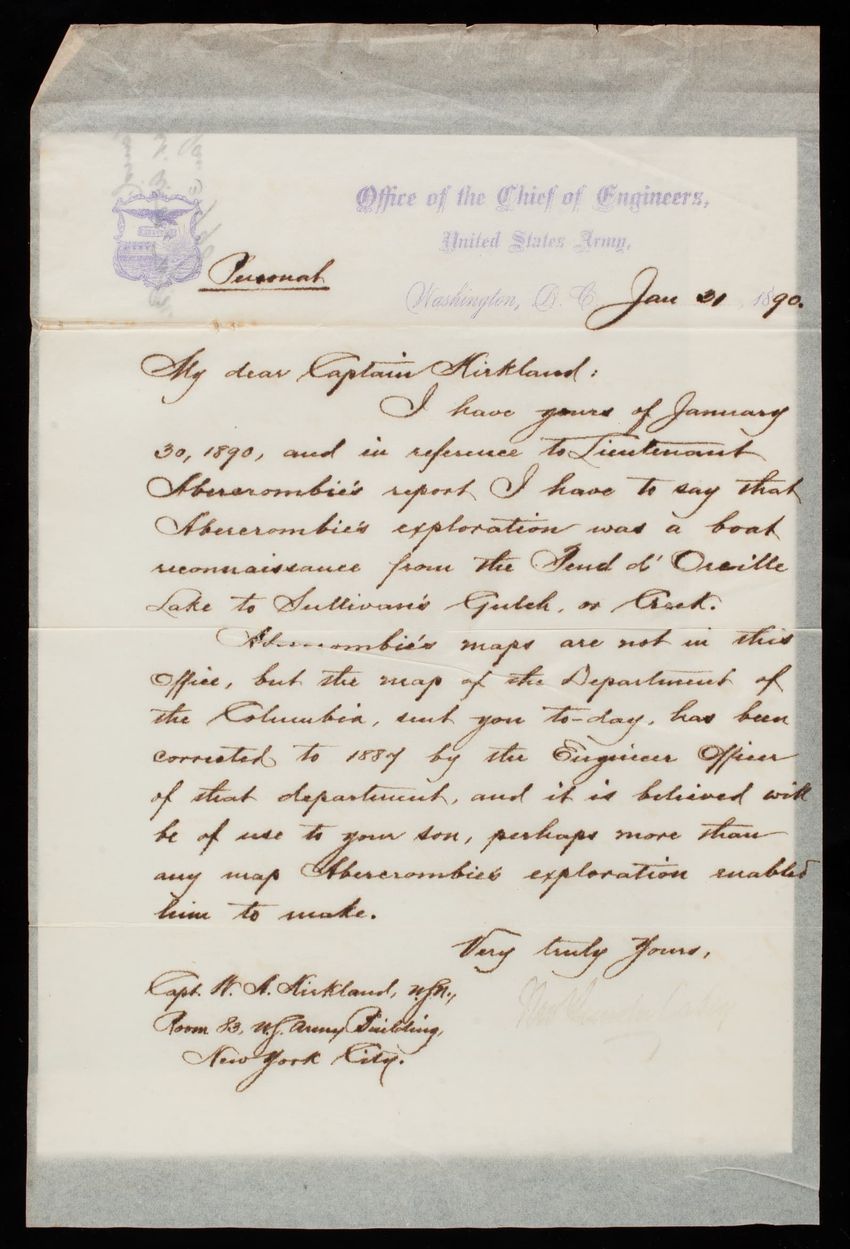 Office of the Chief of Engineers,
United States Army,
Personal
Washington, D. C. Jan 31, 1890.
My dear Captain Kirkland:
I have yours of January
30, 1890, and in reference to Lieutenant
Abercrombie's report I have to say that
Abercrombie's exploration was a boat
reconnaissance from the Pend d'Oreille
Lake to Sullivan's Gulch, or Creek.
Abercrombie's maps are not in this
Office, but the map of the Department of
the Columbia, sent you to-day, has been
corrected to 1887 by the Engineer Officer
of that department, and it is believed will
be of use to your son, perhaps more than
any map Abercrombie's exploration enabled
him to make.
Very truly Yours,
Capt. W. A. Kirkland, U.S.N.,
Room 83, U.S. Army Building,
New York City.